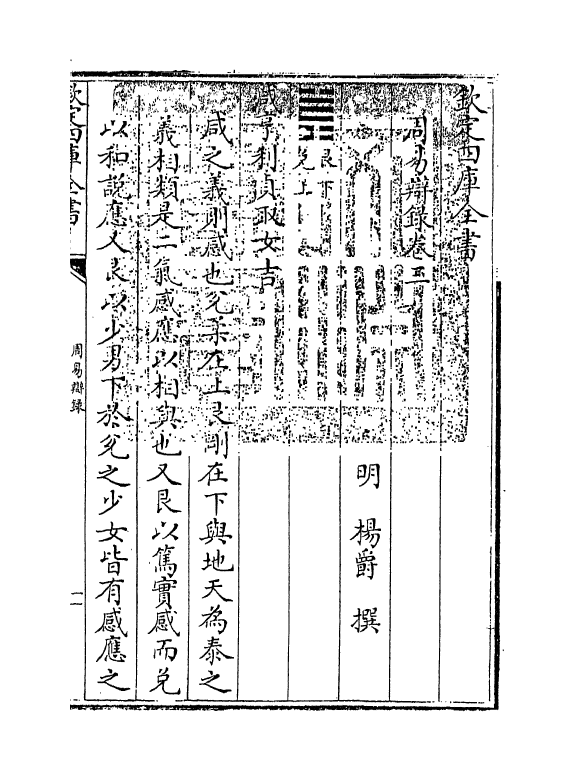 欽定四庫全書
周易辯錄卷三
明 楊爵 撰
艮下
兌上
咸亨利貞取女吉
咸之義則感也兌柔在上艮剛在下與地天為泰之
義相類是二氣感應以相與也又艮以篤實感而兌
以和說應又艮以少男下於兌之少女皆有感應之
欽定四庫全書
周易辯錄